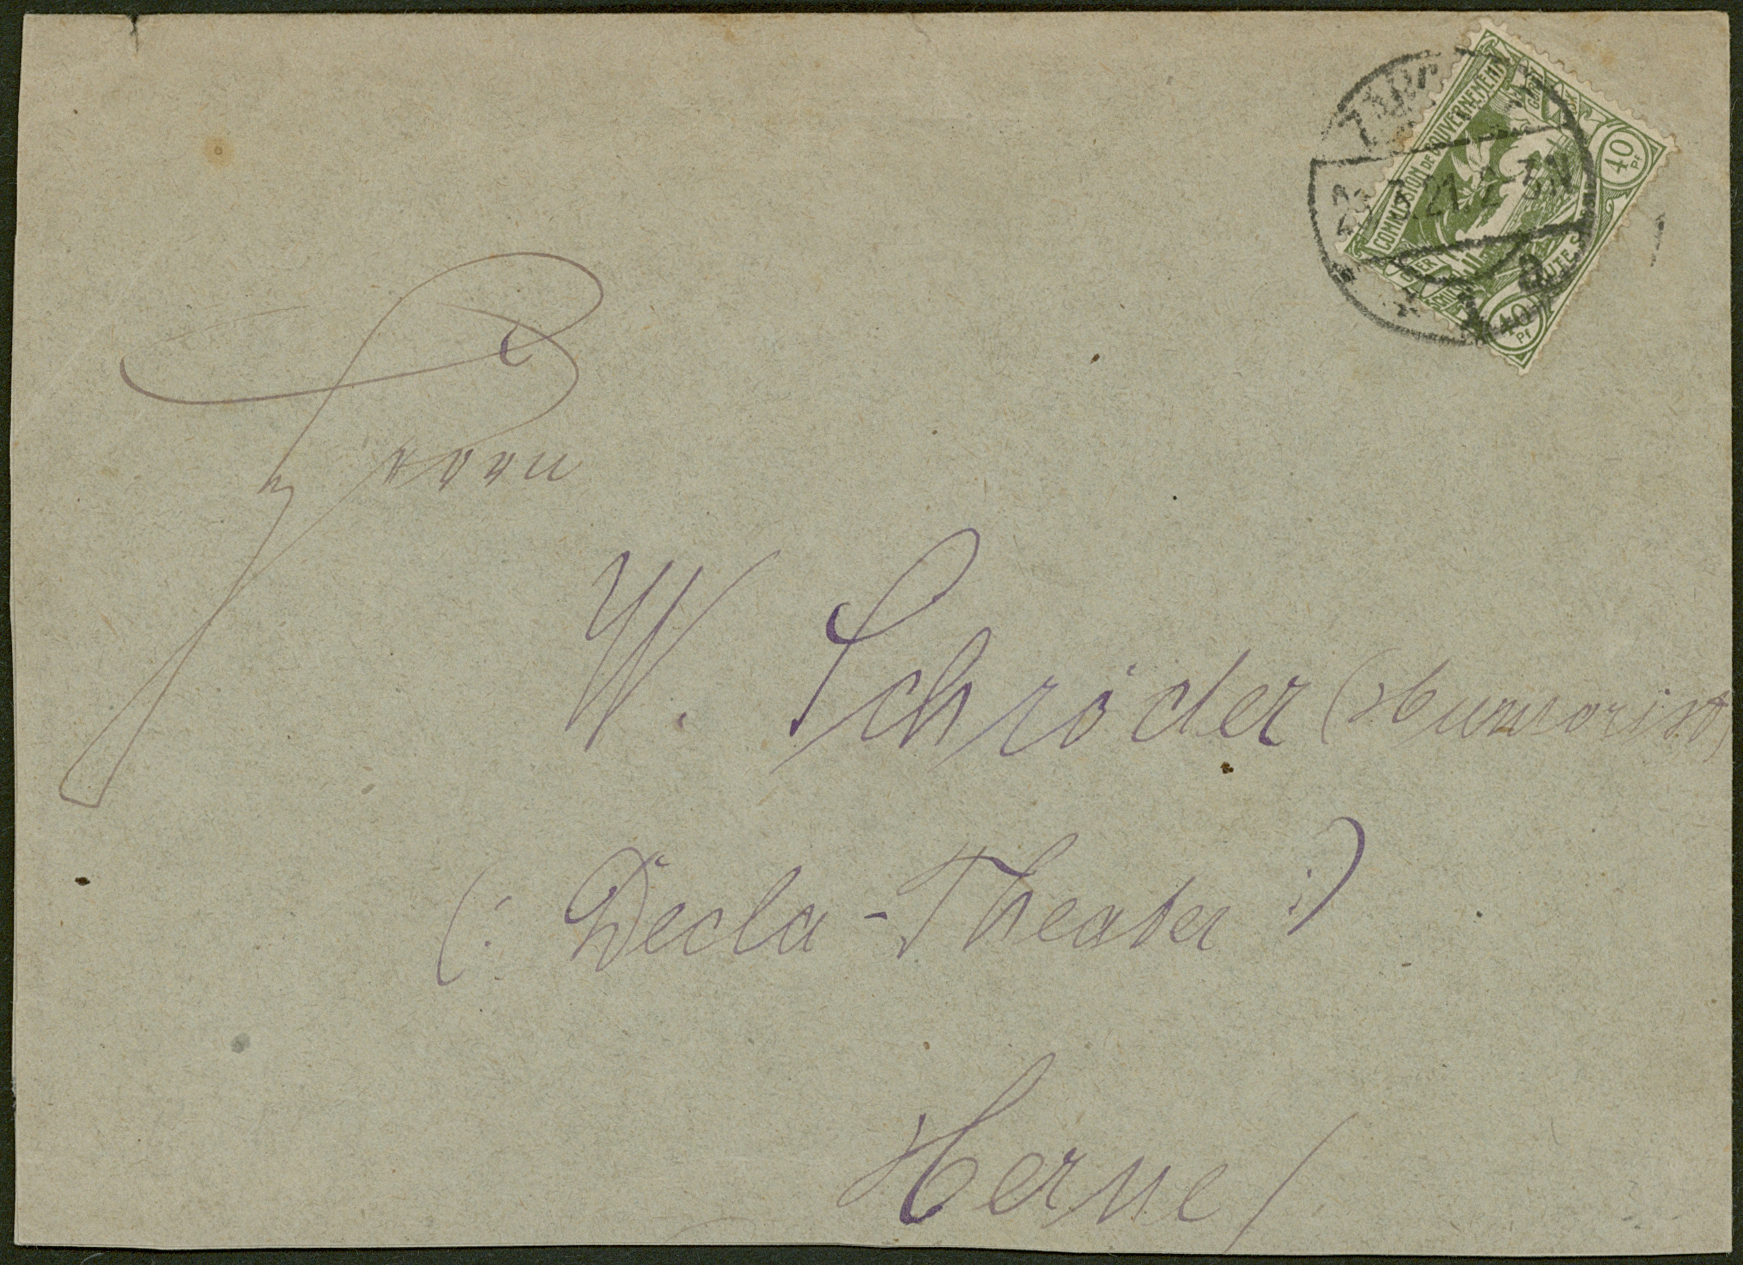 COMMISSION DE GOUVERNEMENT
40 Pf
40 Pf
21.2-3N
a
Herrn
W. Schröder (Humorist)
(: Decla-Theater :)
Herne /